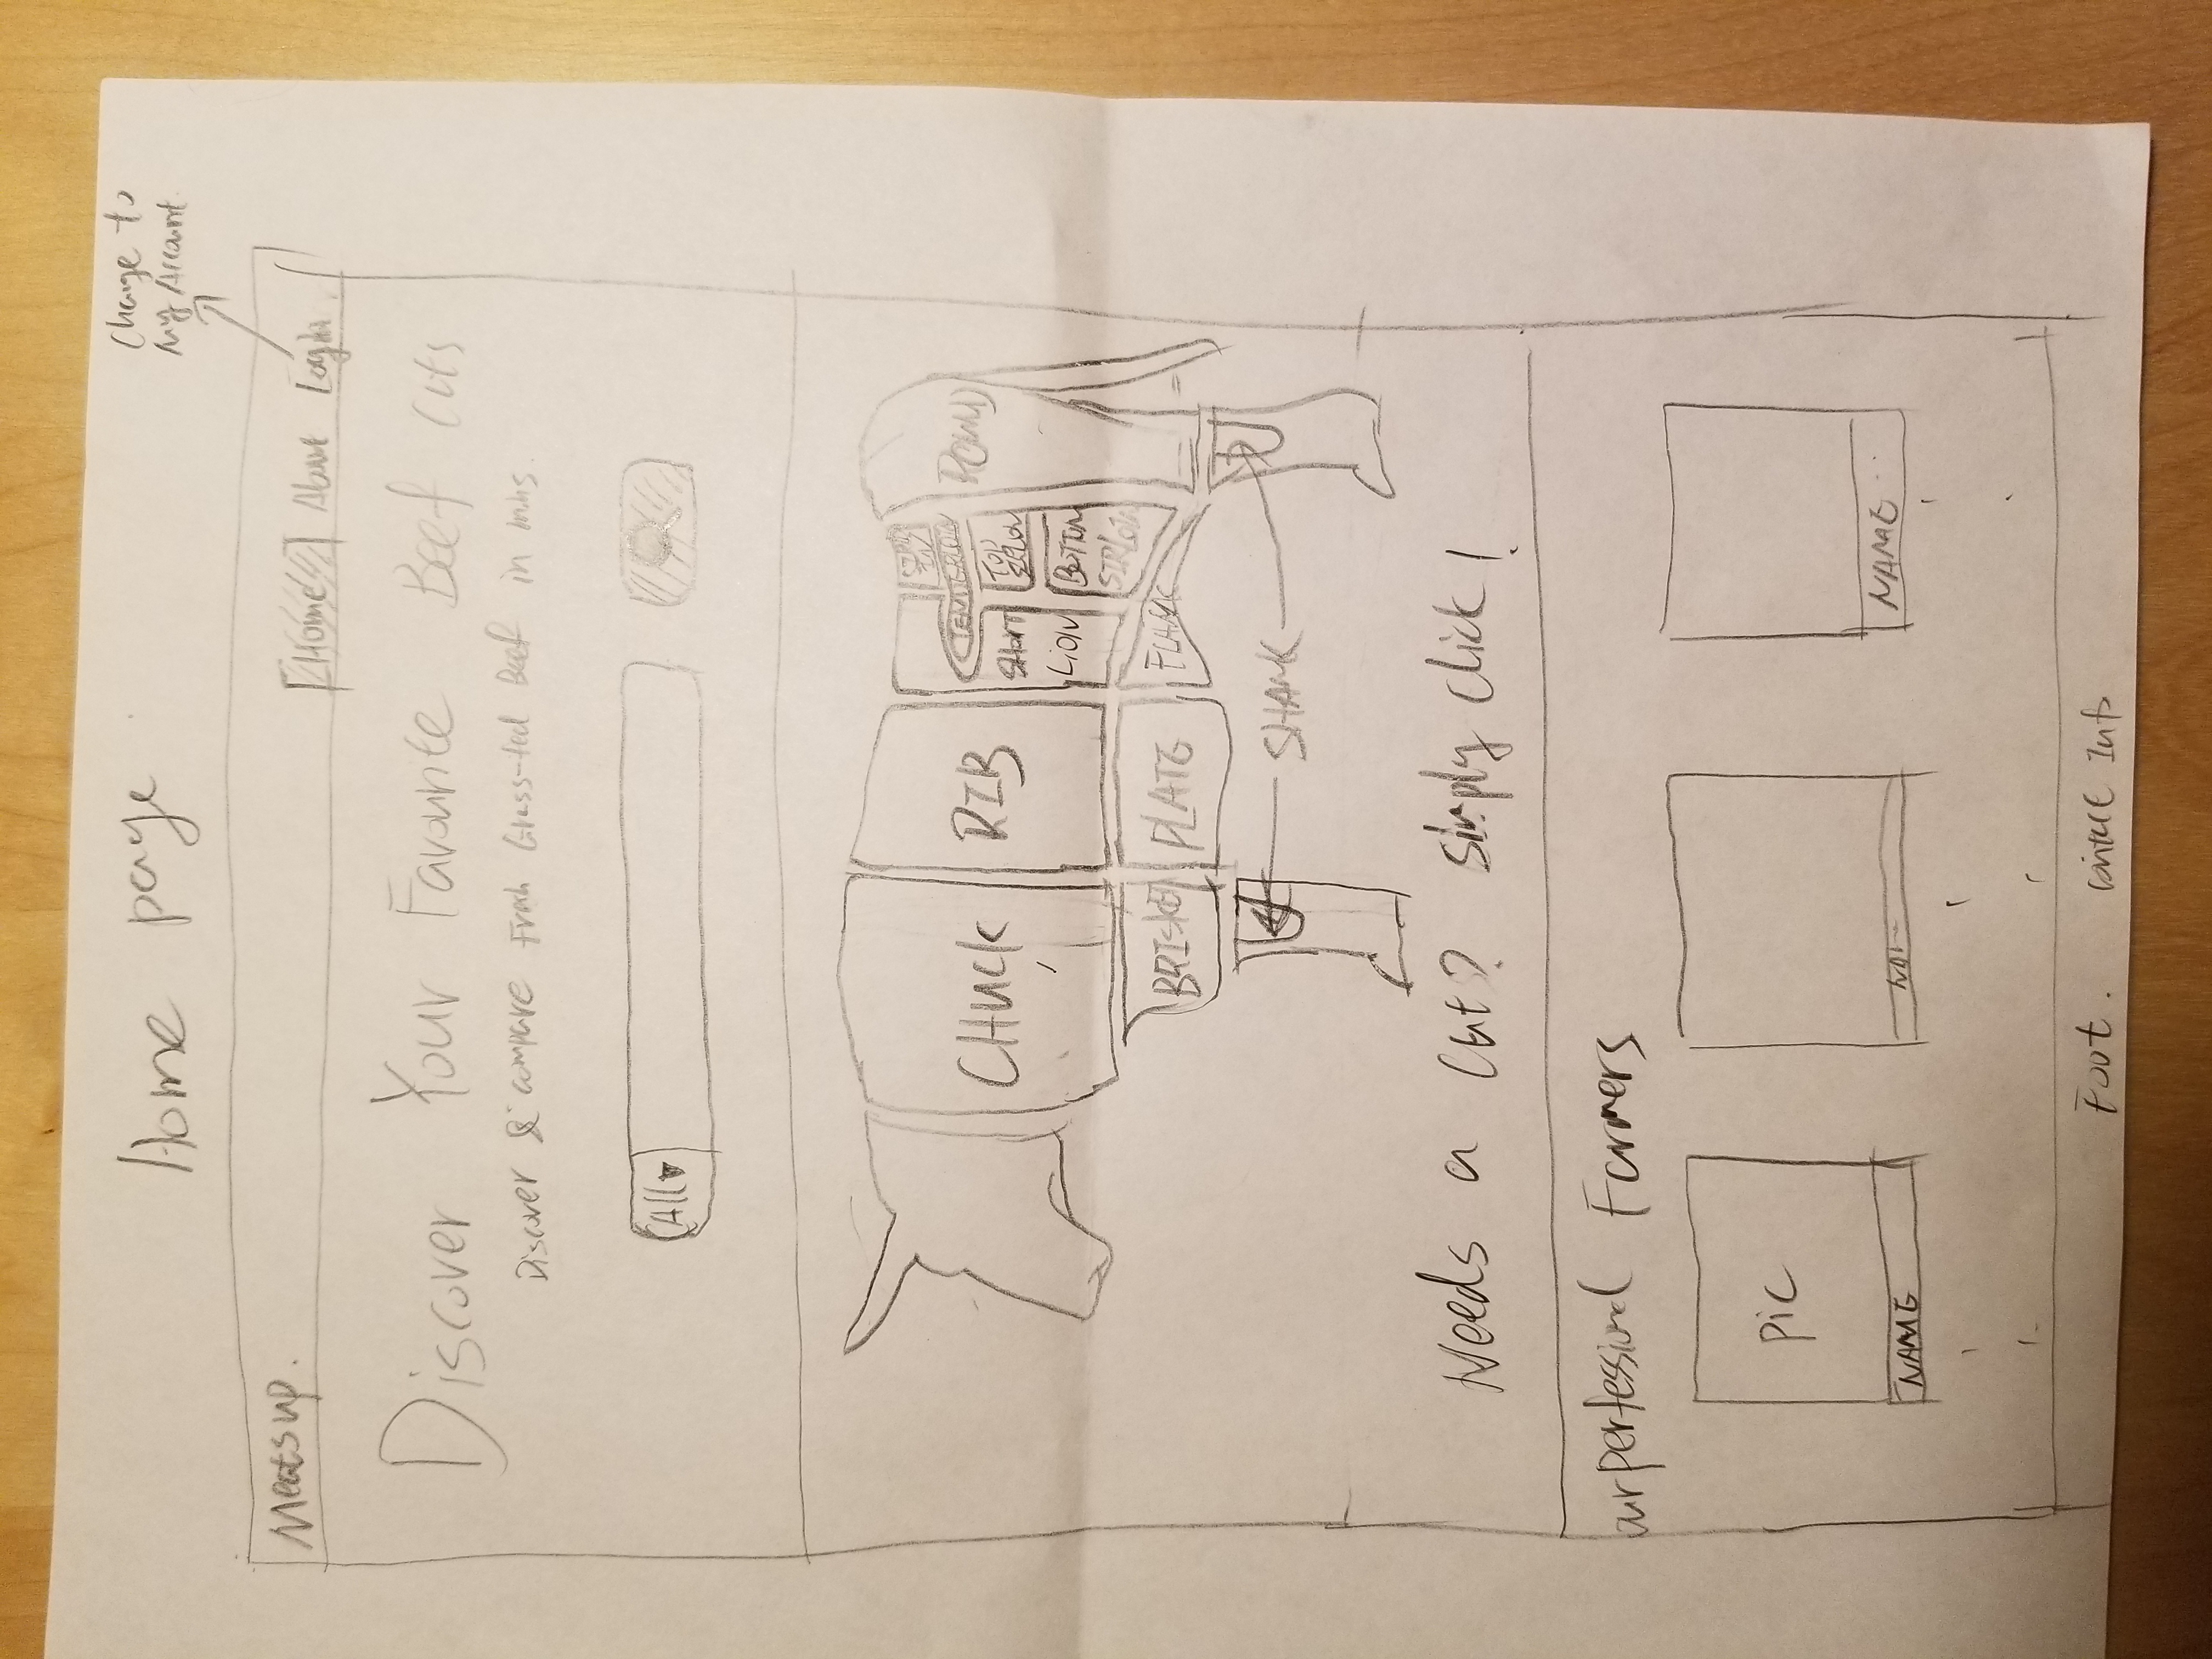 Home page
Change to
My Account
Meatsup.
Home About Login
Discover Your Favourite Beef Cuts
Discover & compare Fresh Grass-fed Beef in mins.
All
CHUCK
RIB
TENDERLOIN
SHORT
LION
TOP
SIRLOIN
BOTTOM
SIRLOIN
ROUND
BRISKET
PLATE
FLANK
SHANK
Needs a Cut? Simply Click!
our perfessional Farmers
pic
NAME
NAME
Foot. Contact Info